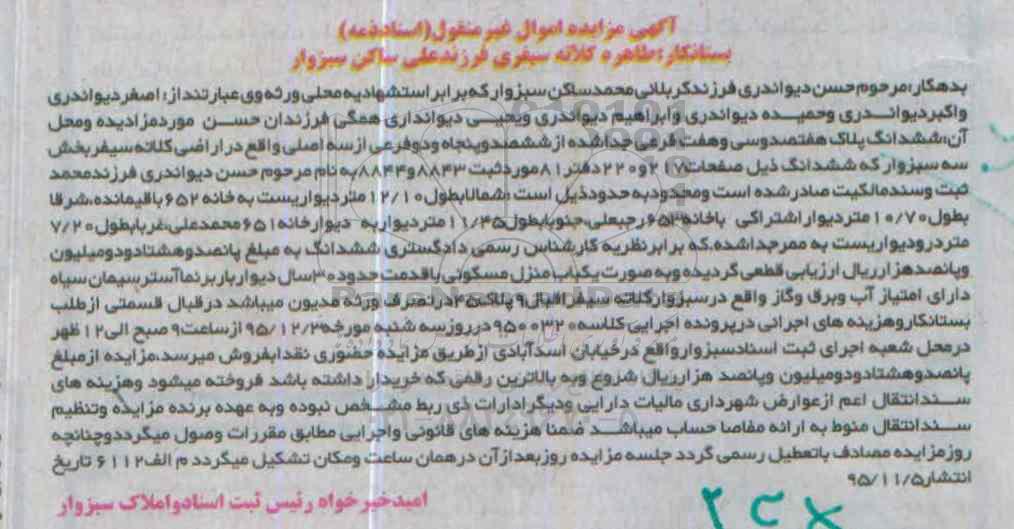 آگهی مزایده اموال غیر منقول(اسناد ذمه)
بستانکار:طاهره کلاته سیفری فرزند علی ساکن سبزوار
بدهکار:مرحوم حسن دیواندری فرزند کربلائی محمد ساکن سبزوار که برابر استشهادیه محلی ورثه وی عبارتند از: اصغر دیواندری
واکبر دیواندری وحمیده دیواندری وابراهیم دیواندری ویحیی دیوانداری همگی فرزندان حسن مورد مزادیده ومحل
آن:ششدانگ پلاک هفتصدوسی وهفت فرعی جدا شده از ششصدوپنجاه ودو فرعی از سه اصلی واقع در اراضی کلاته سیفر بخش
سه سبزوار که ششدانگ ذیل صفحات ۲۱۷و۲۲۰ دفتر ۸۱ مورد ثبت ۸۸۴۳و۸۸۴۴ به نام مرحوم حسن دیواندری فرزند محمد
ثبت وسند مالکیت صادر شده است ومحدود به حدود ذیل است :شمالا بطول ۱۲/۱۰ متر دیواریست به خانه ۶۵۲ باقیمانده،شرقا
بطول ۱۰/۷۰ متر دیوار اشتراکی باخانه ۶۵۳ رجبعلی،جنوبا بطول ۱۱/۴۵ متر دیوار به دیوار خانه ۶۵۱ محمد علی،غربا بطول ۷/۲۰
متر درودیواریست به ممر جدا شده.که برابر نظریه کارشناس رسمی دادگستری ششدانگ به مبلغ پانصدوهشتادودومیلیون
وپانصد هزار ریال ارزیابی قطعی گردیده وبه صورت یکباب منزل مسکونی باقدمت حدود ۳۰ سال دیوار باربر نما آستر سیمان سیاه
دارای امتیاز آب وبرق وگاز واقع در سبزوار کلاته سیفر اقبال ۹ پلاک ۴۵ در تصرف ورثه مدیون میباشد در قبال قسمتی از طلب
بستانکار وهزینه های اجرائی در پرونده اجرایی کلاسه ۹۵۰۰۳۲۰ در روز سه شنبه مورخه ۹۵/۱۲/۳ از ساعت ۹ صبح الی ۱۲ ظهر
در محل شعبه اجرای ثبت اسناد سبزوار واقع در خیابان اسدآبادی از طریق مزایده حضوری نقدا بفروش میرسد.مزایده از مبلغ
پانصدوهشتادودومیلیون وپانصد هزار ریال شروع وبه بالاترین رقمی که خریدار داشته باشد فروخته میشود وهزینه های
سند انتقال اعم از عوارض شهرداری مالیات دارایی ودیگر ادارات ذی ربط مشخص نبوده وبه عهده برنده مزایده وتنظیم
سند انتقال منوط به ارائه مفاصا حساب میباشد ضمنا هزینه های قانونی واجرایی مطابق مقررات وصول میگردد وچنانچه
روز مزایده مصادف باتعطیل رسمی گردد جلسه مزایده روز بعد از آن در همان ساعت ومکان تشکیل میگردد م الف ۶۱۱۲ تاریخ
انتشار ۹۵/۱۱/۵
امید خیر خواه رئیس ثبت اسناد واملاک سبزوار